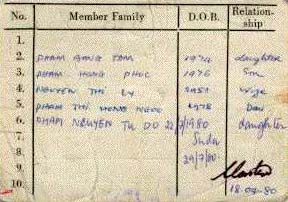 No. Member Family D.O.B. Relation-ship
1.
2. PHAM BANG TAM 1974 daughter
3. PHAM HUNG PHUC 1976 Son
4. NGUYEN THI LY 1951 wife
5. PHAM THI HONG NGOC 1978 Dau
6. PHAM NGUYEN TU DO 22/7/1980 daughter
7.
8. 29/7/80
9.
10. 18.09.80